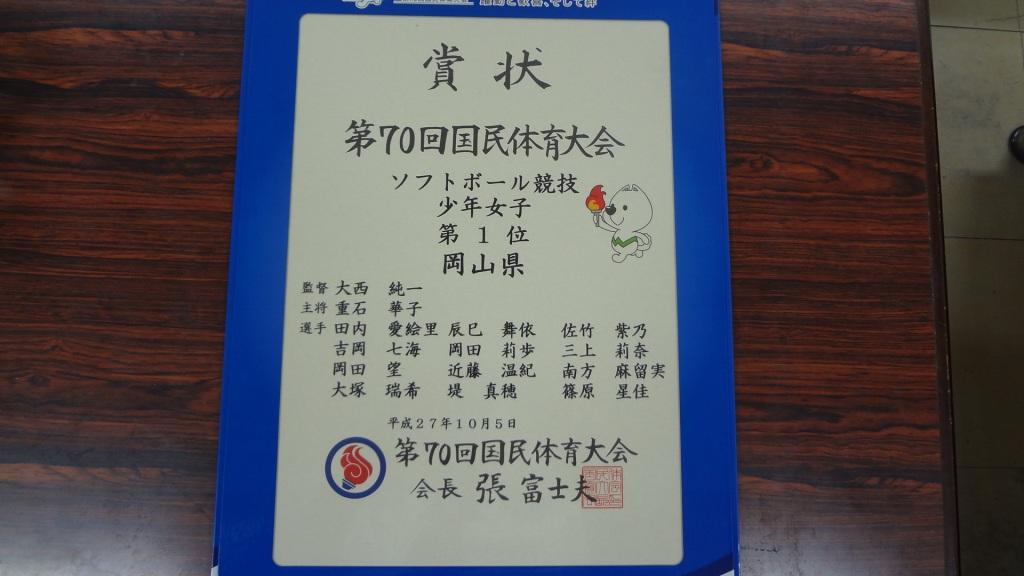 躍動と歓喜、そして絆
賞状
第70回国民体育大会
ソフトボール競技
少年女子
第1位
岡山県
監督 大西 純一
主将 重石 華子
選手 田内 愛絵里 辰巳 舞依 佐竹 紫乃
吉岡 七海 岡田 莉歩 三上 莉奈
岡田 望 近藤 温紀 南方 麻留実
大塚 瑞希 堤 真穂 篠原 星佳
平成27年10月5日
第70回国民体育大会
会長 張 富士夫